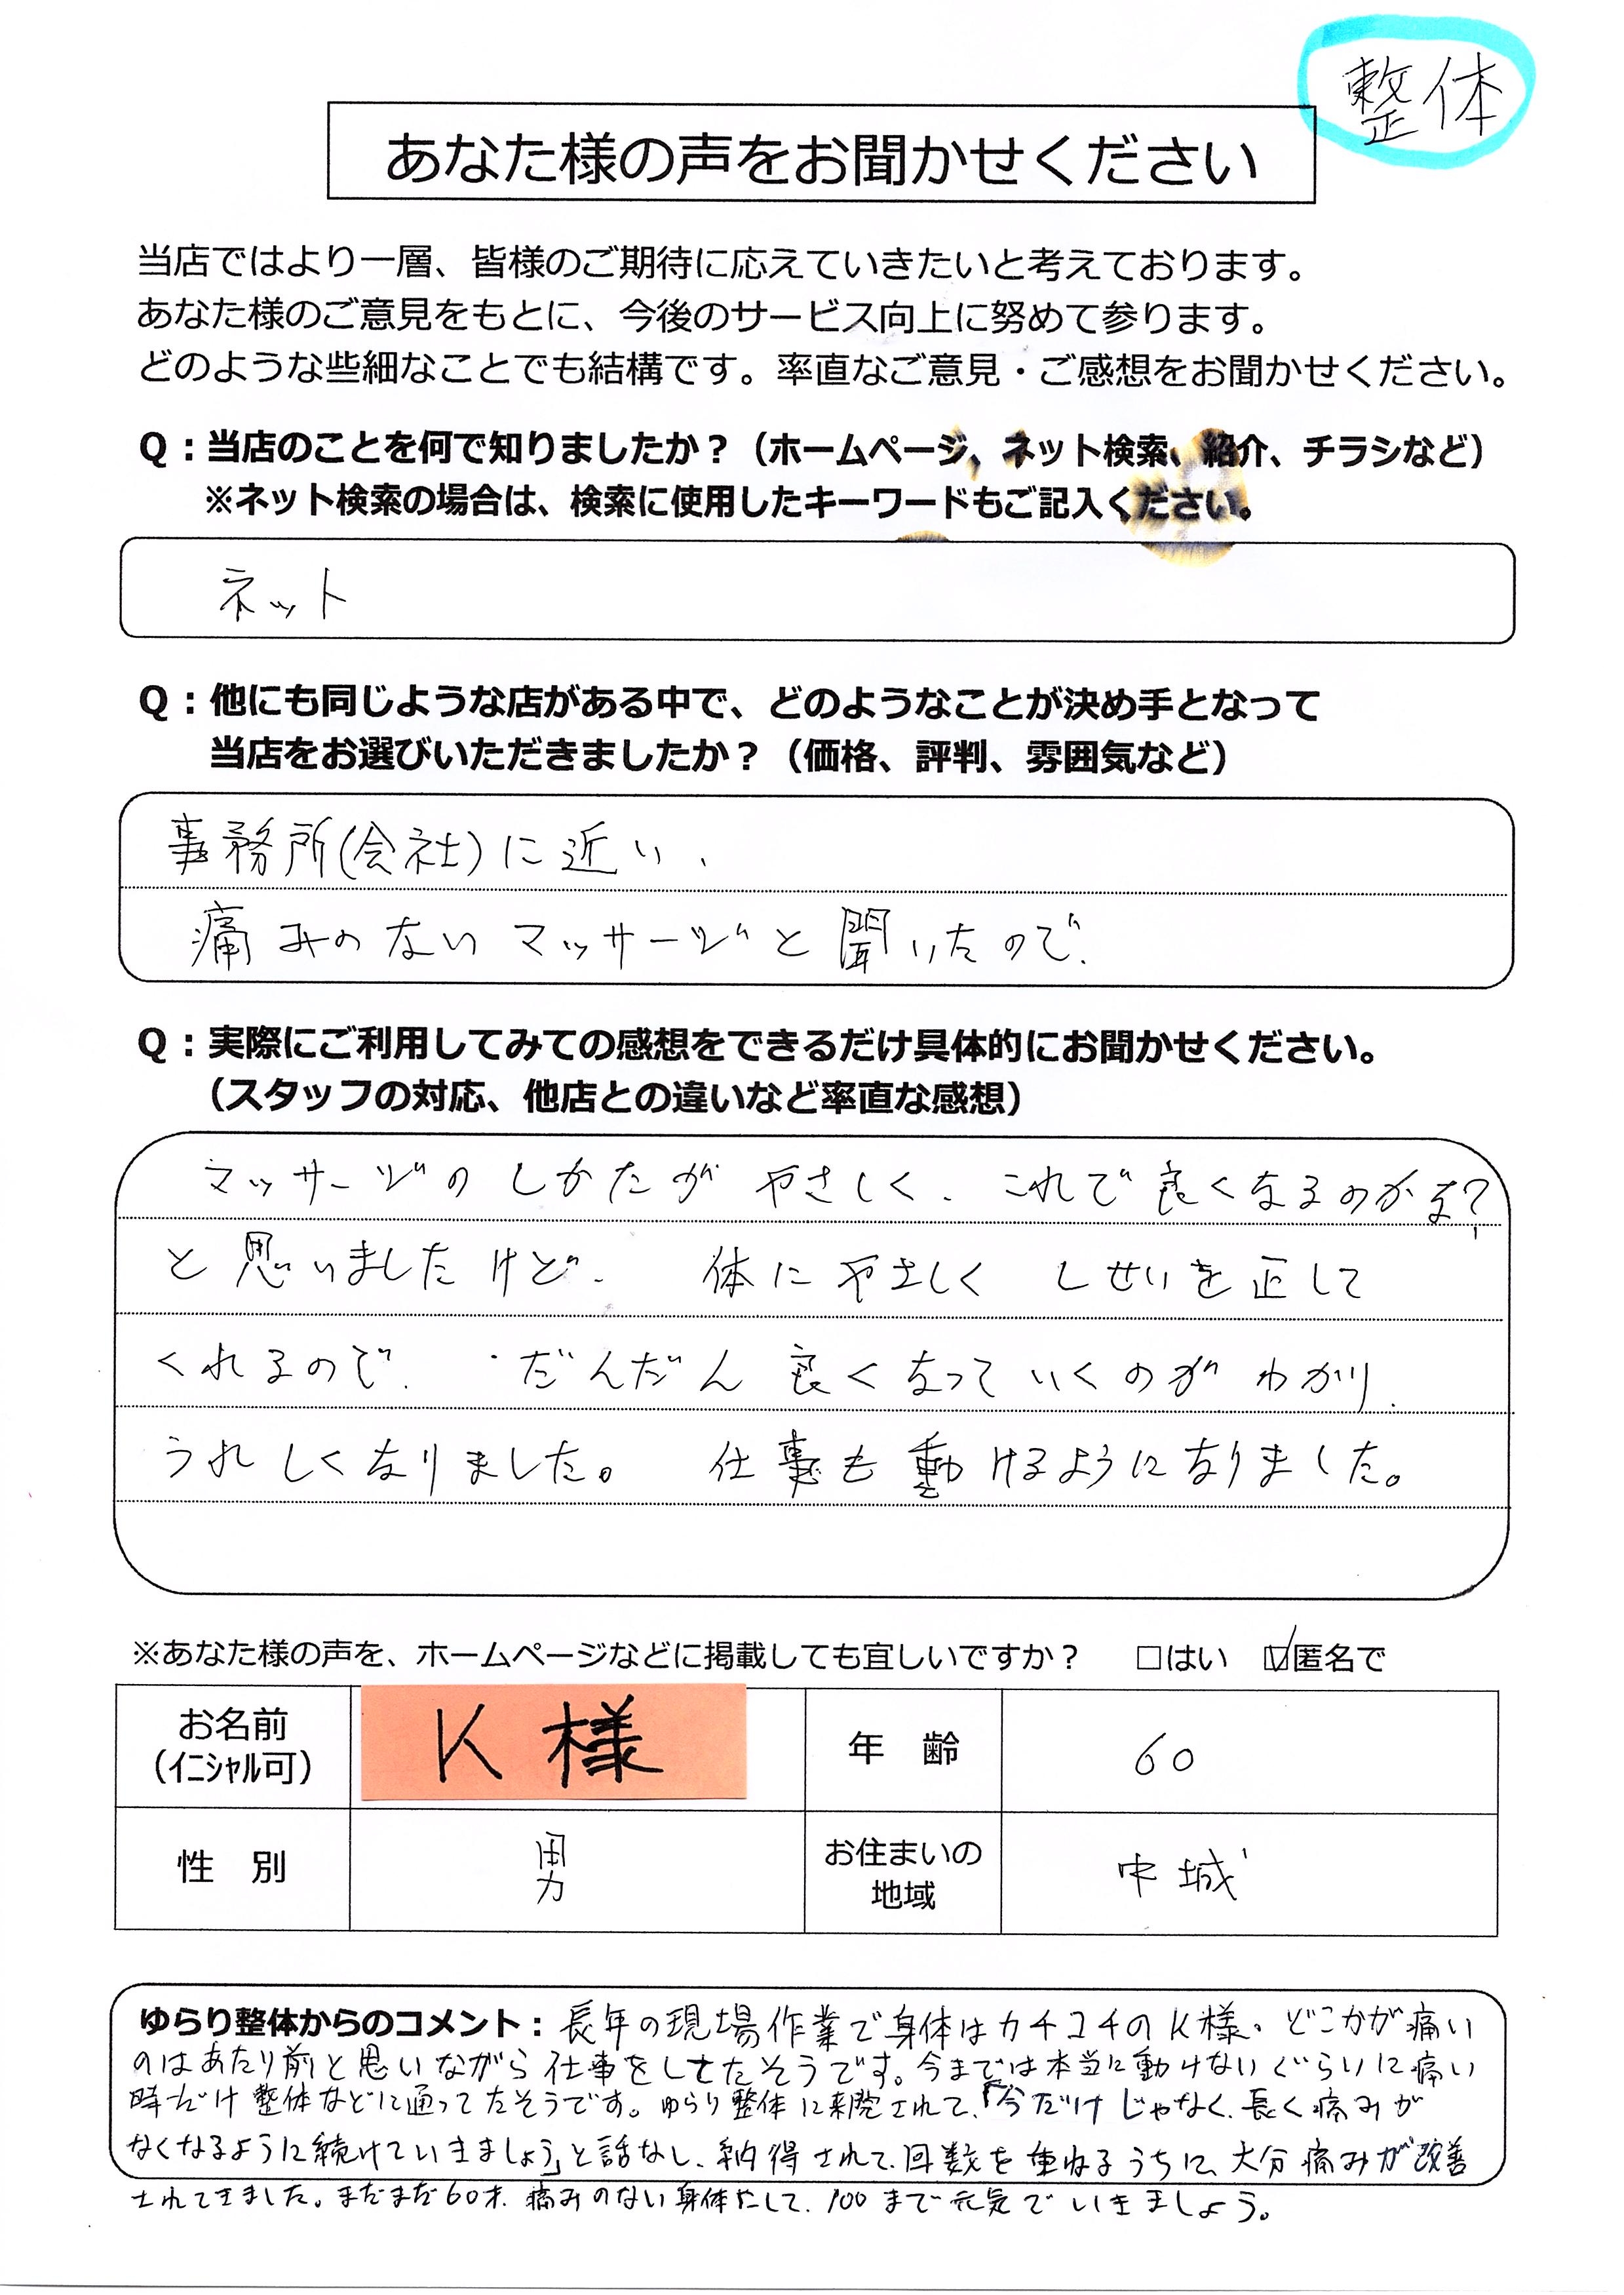 整体
あなた様の声をお聞かせください
当店ではより一層、皆様のご期待に応えていきたいと考えております。
あなた様のご意見をもとに、今後のサービス向上に努めて参ります。
どのような些細なことでも結構です。率直なご意見・ご感想をお聞かせください。
Q：当店のことを何で知りましたか？（ホームページ、ネット検索、紹介、チラシなど）
※ネット検索の場合は、検索に使用したキーワードもご記入ください。
ネット
Q：他にも同じような店がある中で、どのようなことが決め手となって
当店をお選びいただきましたか？（価格、評判、雰囲気など）
事務所(会社)に近い、
痛みのないマッサージと聞いたので、
Q：実際にご利用してみての感想をできるだけ具体的にお聞かせください。
（スタッフの対応、他店との違いなど率直な感想）
マッサージのしかたがやさしく、これで良くなるのかな?
と思いましたけど、体にやさしくしせいを正して
くれるので、だんだん良くなっていくのがわかり、
うれしくなりました。仕事も動けるようになりました。
※あなた様の声を、ホームページなどに掲載しても宜しいですか？ □はい ☑匿名で
お名前 K様 年 齢 60
（ｲﾆｼｬﾙ可）
性 別 男 お住まいの地域 中城
ゆらり整体からのコメント：長年の現場作業で身体はカチコチのK様。どこかが痛い
のはあたり前と思いながら仕事をしてたそうです。今までは本当に動けないぐらいに痛い
時だけ整体などに通ってたそうです。ゆらり整体に来院されて、「今だけじゃなく、長く痛みが
なくなるように続けていきましょう」と話なし、納得されて、回数を重ねるうちに、大分痛みが改善
されてきました。まだまだ60才、痛みのない身体にして、100まで元気でいきましょう。